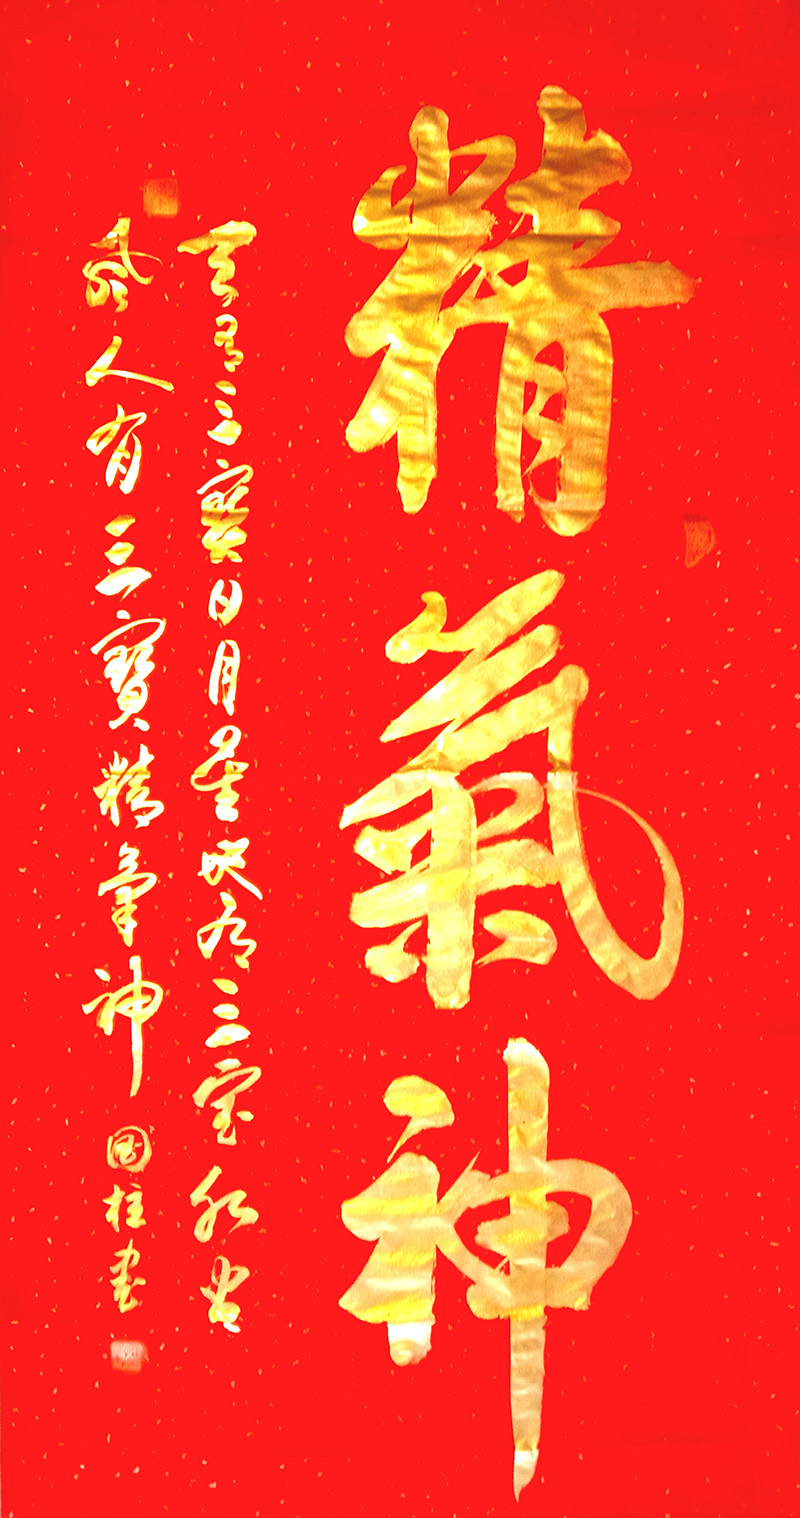 精氣神
天有三寶日月星地有三宝水火
風人有三寶精氣神 国柱書